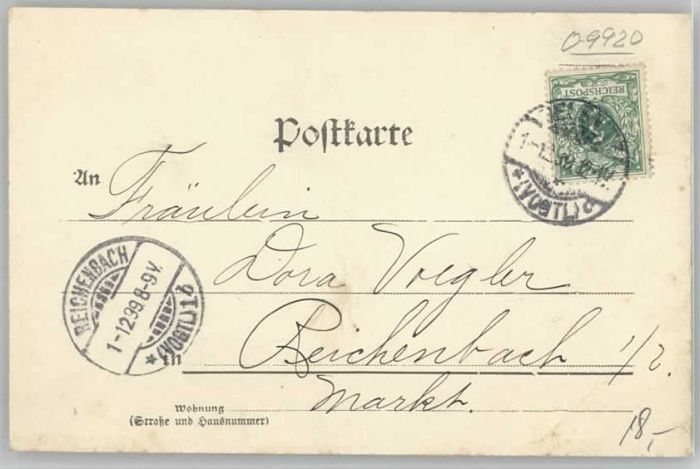 09920
REICHSPOST
Postkarte
An
Fräulein
Dora Voegler
REICHENBACH
1-12 99. 8-9 V.
(VOGTL) 1 b
in
Reichenbach i/v.
Markt.
Wohnung
(Straße und Hausnummer)
18,-